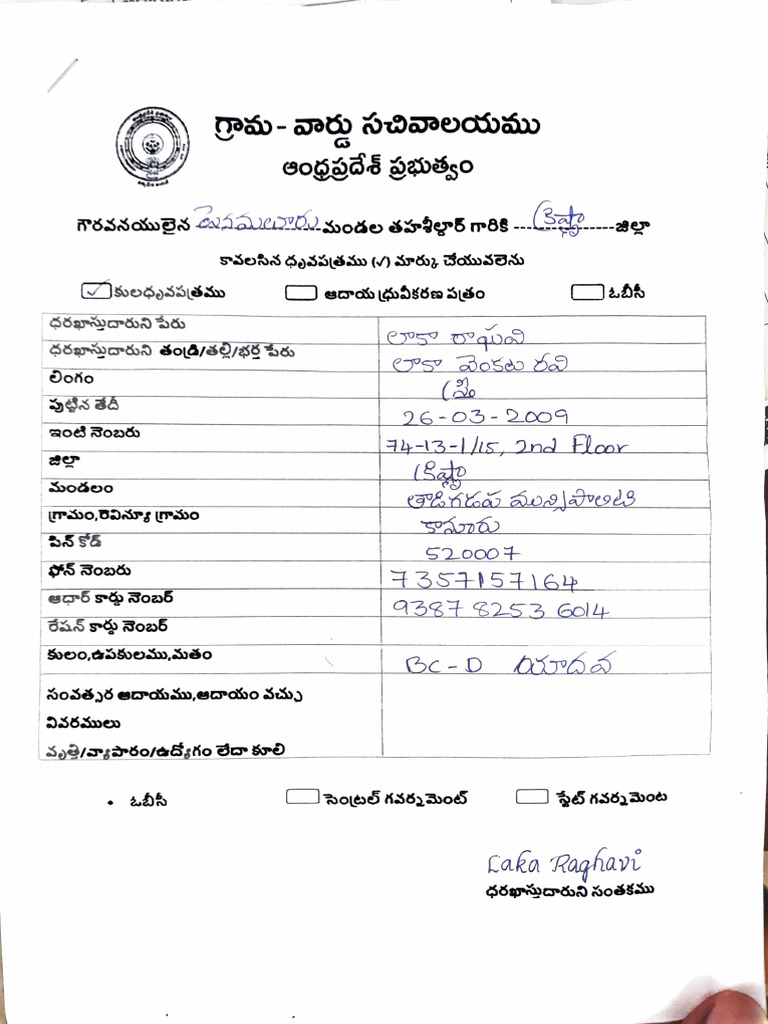 గ్రామ - వార్డు సచివాలయము
ఆంధ్రప్రదేశ్ ప్రభుత్వం
గౌరవనయులైన పెనమలూరు మండల తహశీల్దార్ గారికి ---- క్రిష్ణా ---- జిల్లా
కావలసిన ధృవపత్రము (✓) మార్కు చేయువలెను
✓ కులధృవపత్రము ఆదాయ ధ్రువీకరణ పత్రం ఓబీసీ
ధరఖాస్తుదారుని పేరు లాకా రాఘవి
ధరఖాస్తుదారుని తండ్రి/తల్లి/భర్త పేరు లాకా వెంకట రవి
లింగం స్త్రీ
పుట్టిన తేదీ 26-03-2009
ఇంటి నెంబరు 74-13-1/15, 2nd Floor
జిల్లా క్రిష్ణా
మండలం తాడిగడప మున్సిపాలిటి
గ్రామం,రెవిన్యూ గ్రామం కానూరు
పిన్ కోడ్ 520007
ఫోన్ నెంబరు 7357157164
ఆధార్ కార్డు నెంబర్ 9387 8253 6014
రేషన్ కార్డు నెంబర్
కులం,ఉపకులము,మతం BC-D యాదవ
సంవత్సర ఆదాయము,ఆదాయం వచ్చు
వివరములు
వృత్తి/వ్యాపారం/ఉద్యోగం లేదా కూలి
• ఓబీసీ సెంట్రల్ గవర్నమెంట్ స్టేట్ గవర్నమెంట
Laka Raghavi
ధరఖాస్తుదారుని సంతకము